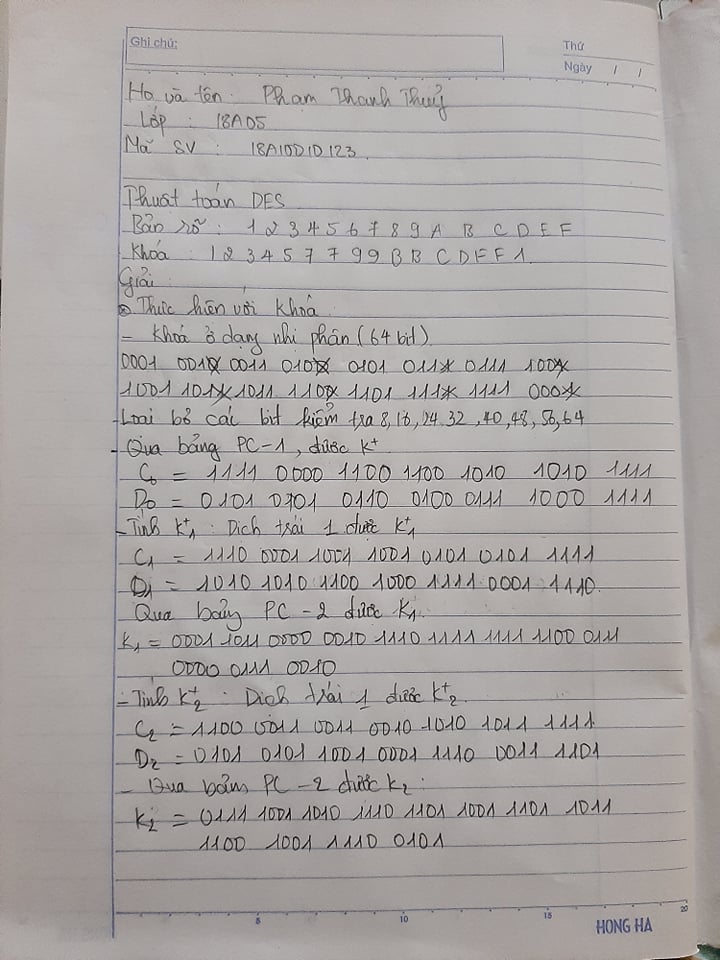 Ghi chú:
Thứ
Ngày / /
Họ và tên : Phạm Thanh Thuỷ
Lớp : 18A05
Mã SV : 18A10010123
Thuật toán DES
Bản rõ : 1 2 3 4 5 6 7 8 9 A B C D E F
Khóa : 1 2 3 4 5 7 7 9 9 B B C D F F 1
Giải :
Thực hiện với khoá
- Khoá ở dạng nhị phân (64 bit)
0001 0011 0011 0100 0101 0111 0111 1001
1001 1011 1011 1100 1101 1111 1111 0001
- Loại bỏ các bit kiểm tra 8, 16, 24 32, 40, 48, 56, 64
- Qua bảng PC-1, được K⁺
C₀ = 1111 0000 1100 1100 1010 1010 1111
D₀ = 0101 0101 0110 0100 0111 1000 1111
- Tính K⁺₁ : Dịch trái 1 được K⁺₁
C₁ = 1110 0001 1001 1001 0101 0101 1111
D₁ = 1010 1010 1100 1000 1111 0001 1110.
Qua bảng PC-2 được K₁.
K₁ = 0001 1011 0000 0010 1110 1111 1111 1100 0111
0000 0111 0010
- Tính K⁺₂ : Dịch trái 1 được K⁺₂
C₂ = 1100 0011 0011 0010 1010 1011 1111
D₂ = 0101 0101 1001 0001 1110 0011 1101
- Qua bảng PC-2 được K₂ :
K₂ = 0111 1001 1010 1110 1101 1001 1101 1011
1100 1001 1110 0101
5 10 15 20
HONG HA